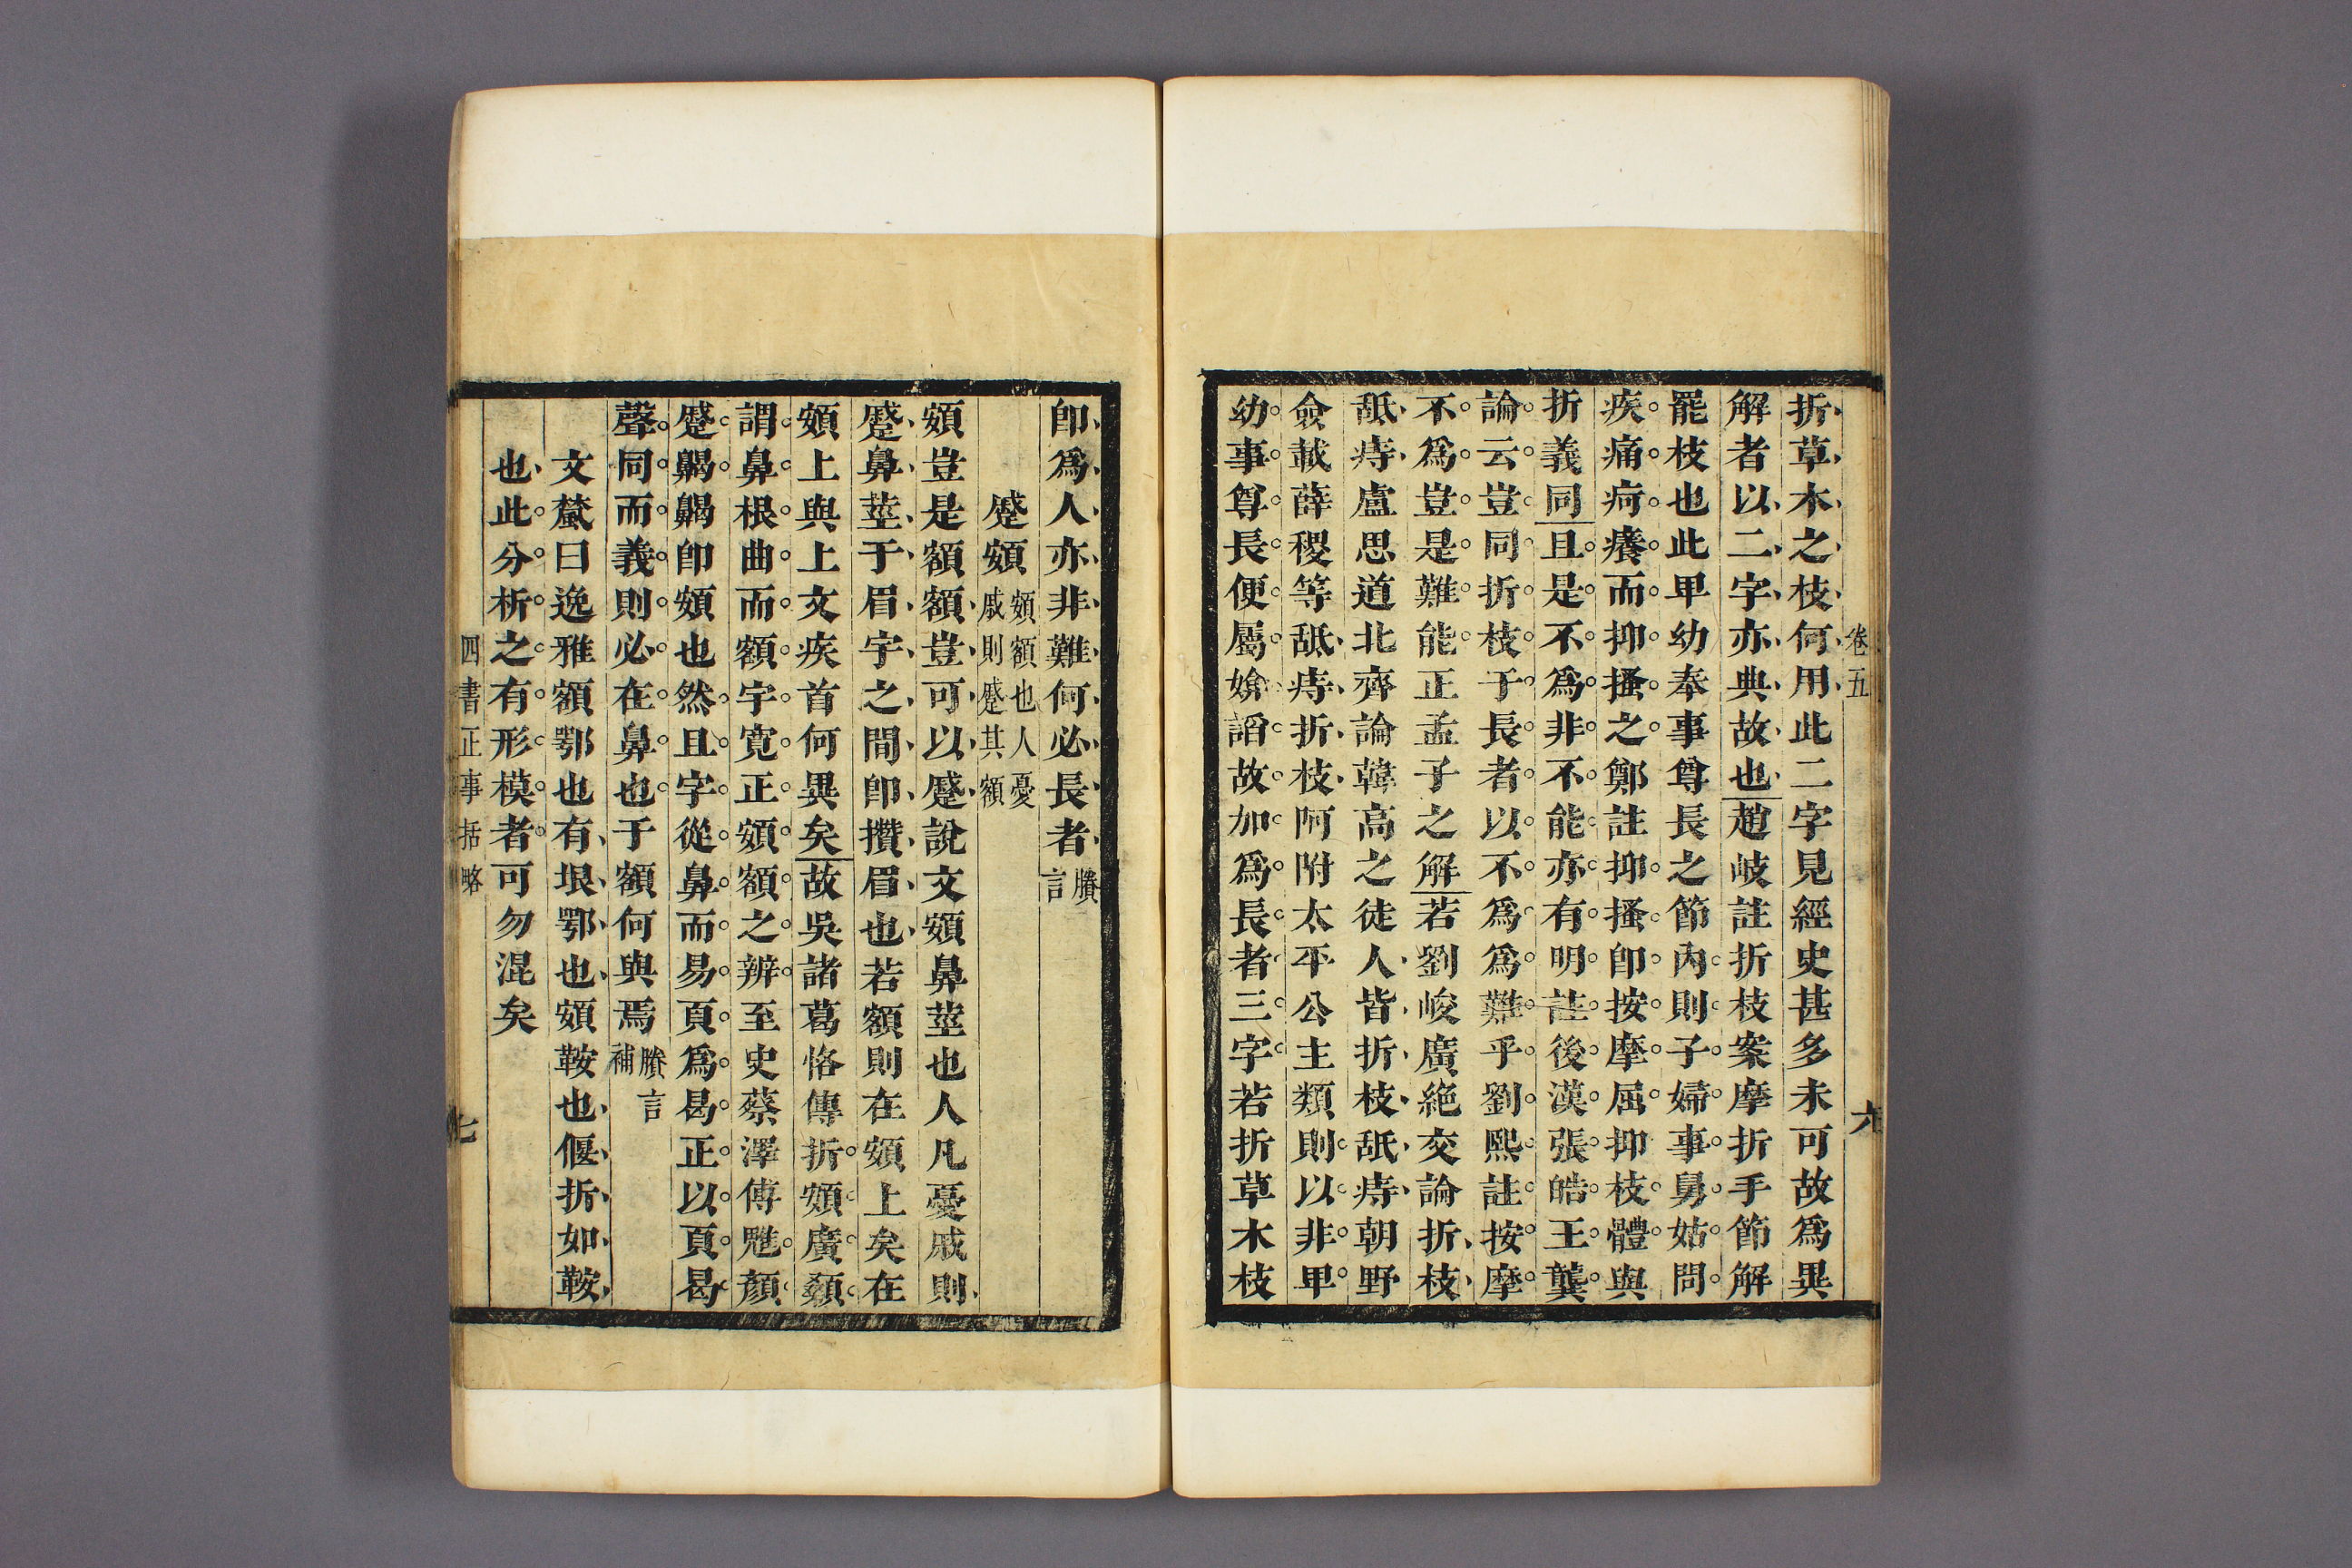 卷五
六
折草木之枝何用此二字見經史甚多未可故爲異
解者以二字亦典故也趙岐註折枝案摩折手節解
罷枝也此卑幼奉事尊長之節內則子婦事舅姑問
疾痛疴癢而抑搔之鄭註抑搔卽按摩屈抑枝體與
折義同且是不爲非不能亦有明註後漢張皓王龔
論云豈同折枝于長者以不爲爲難乎劉熙註按摩
不爲豈是難能正孟子之解若劉峻廣絕交論折枝
舐痔盧思道北齊論韓高之徒人皆折枝舐痔朝野
僉載薛稷等舐痔折枝阿附太平公主類則以非卑
幼事尊長便屬媕謟故加爲長者三字若折草木枝
卽爲人亦非難何必長者
賸
言
蹙頞
頞額也人憂
戚則蹙其額
頞豈是額額豈可以蹙說文頞鼻莖也人凡憂戚則
蹙鼻莖于眉宇之間卽攢眉也若額則在頞上矣在
頞上與上文疾首何異矣故吳諸葛恪傳折頞廣顙
謂鼻根曲而額宇寬正頞額之辨至史蔡澤傳魋顏
蹙齃齃卽頞也然且字從鼻而易頁爲曷正以頁曷
聲同而義則必在鼻也于額何與焉
賸言
補
文虨曰逸雅額鄂也有垠鄂也頞鞍也偃折如鞍
也此分析之有形模者可勿混矣
四書正事括略
七